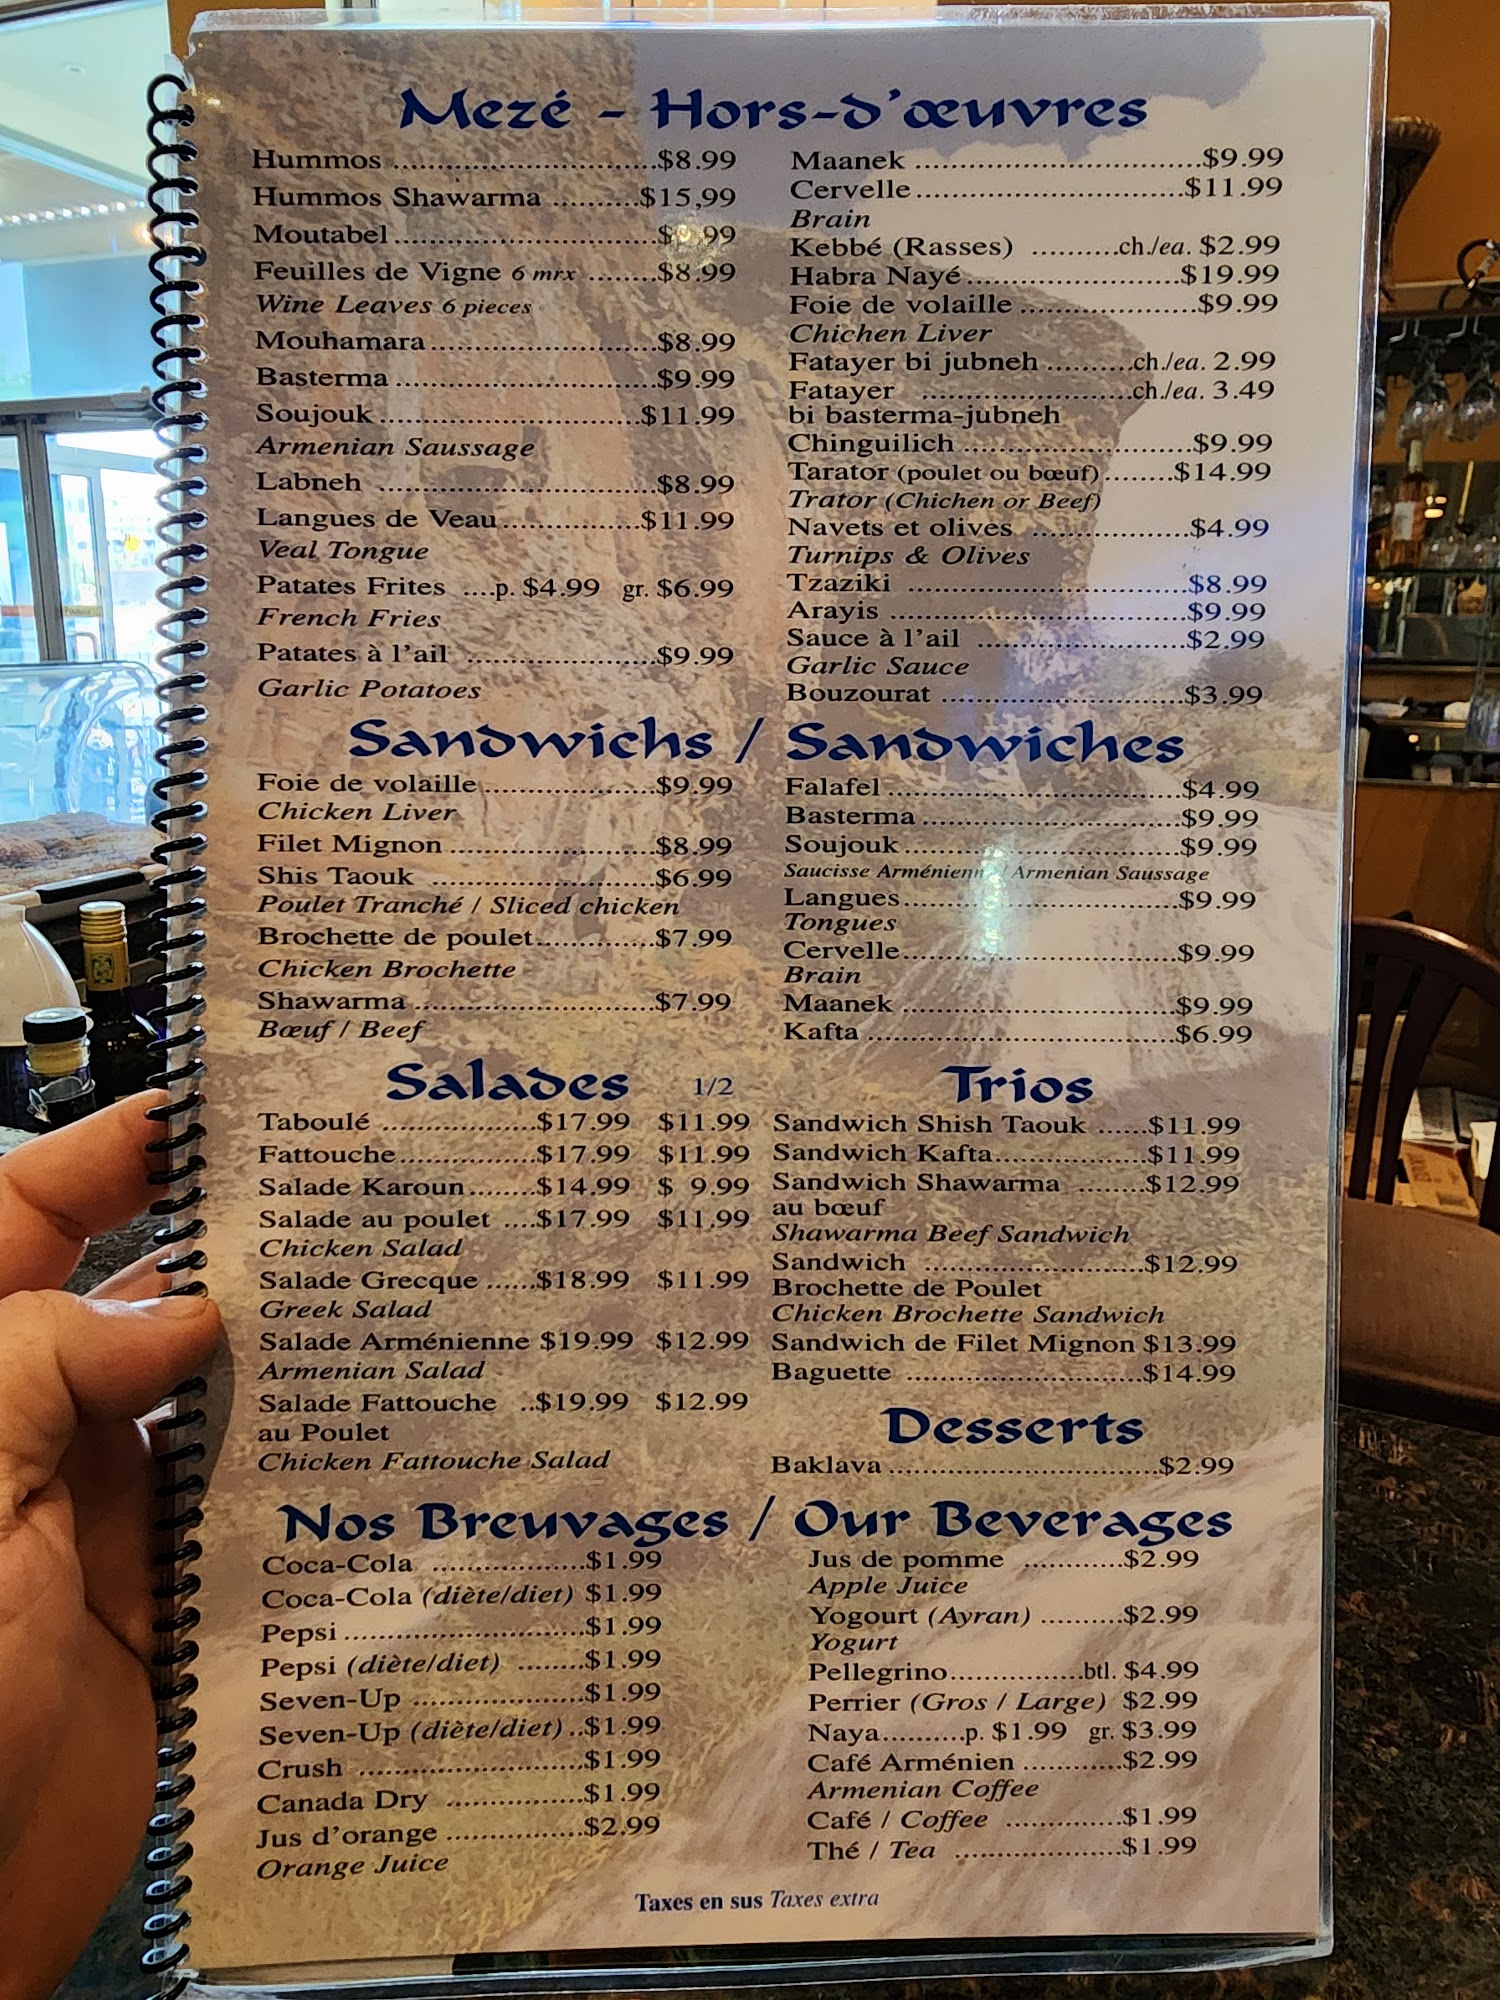 Mezé - Hors-d'œuvres
Hummos ..............................$8.99
Hummos Shawarma ..........$15,99
Moutabel..............................
Feuilles de Vigne 6 mrx ........$8.99
Wine Leaves 6 pieces
Mouhamara..........................$8.99
Basterma..............................$9.99
Soujouk................................$11.99
Armenian Saussage
Labneh ................................$8.99
Langues de Veau................$11.99
Veal Tongue
Patates Frites ....p. $4.99 gr. $6.99
French Fries
Patates à l'ail ......................$9.99
Garlic Potatoes
Maanek ................................$9.99
Cervelle................................$11.99
Brain
Kebbé (Rasses) ..........ch./ea. $2.99
Habra Nayé..........................$19.99
Foie de volaille ....................$9.99
Chichen Liver
Fatayer bi jubneh ..........ch./ea. 2.99
Fatayer ........................ch./ea. 3.49
bi basterma-jubneh
Chinguilich ..........................$9.99
Tarator (poulet ou bœuf)........$14.99
Trator (Chichen or Beef)
Navets et olives ..................$4.99
Turnips & Olives
Tzaziki ................................$8.99
Arayis ..................................$9.99
Sauce à l'ail ........................$2.99
Garlic Sauce
Bouzourat ............................$3.99
Sandwichs / Sandwiches
Foie de volaille....................$9.99
Chicken Liver
Filet Mignon........................$8.99
Shis Taouk ..........................$6.99
Poulet Tranché / Sliced chicken
Brochette de poulet..............$7.99
Chicken Brochette
Shawarma............................$7.99
Bœuf / Beef
Falafel..................................$4.99
Basterma..............................$9.99
Soujouk................................$9.99
Saucisse / Armenian Saussage
Langues................................$9.99
Tongues
Cervelle................................$9.99
Brain
Maanek ................................$9.99
Kafta....................................$6.99
Salades 1/2
Taboulé ..................$17.99 $11.99
Fattouche................$17.99 $11.99
Salade Karoun........$14.99 $ 9.99
Salade au poulet ....$17.99 $11.99
Chicken Salad
Salade Grecque ......$18.99 $11.99
Greek Salad
Salade Arménienne $19.99 $12.99
Armenian Salad
Salade Fattouche ..$19.99 $12.99
au Poulet
Chicken Fattouche Salad
Trios
Sandwich Shish Taouk ......$11.99
Sandwich Kafta..................$11.99
Sandwich Shawarma ........$12.99
au bœuf
Shawarma Beef Sandwich
Sandwich ..........................$12.99
Brochette de Poulet
Chicken Brochette Sandwich
Sandwich de Filet Mignon $13.99
Baguette ............................$14.99
Desserts
Baklava................................$2.99
Nos Breuvages / Our Beverages
Coca-Cola ..................$1.99
Coca-Cola (diète/diet) $1.99
Pepsi............................$1.99
Pepsi (diète/diet) ........$1.99
Seven-Up ....................$1.99
Seven-Up (diète/diet)..$1.99
Crush ..........................$1.99
Canada Dry ................$1.99
Jus d'orange................$2.99
Orange Juice
Jus de pomme ............$2.99
Apple Juice
Yogourt (Ayran) ..........$2.99
Yogurt
Pellegrino................btl. $4.99
Perrier (Gros / Large) $2.99
Naya..........p. $1.99 gr. $3.99
Café Arménien ............$2.99
Armenian Coffee
Café / Coffee ..............$1.99
Thé / Tea ....................$1.99
Taxes en sus Taxes extra